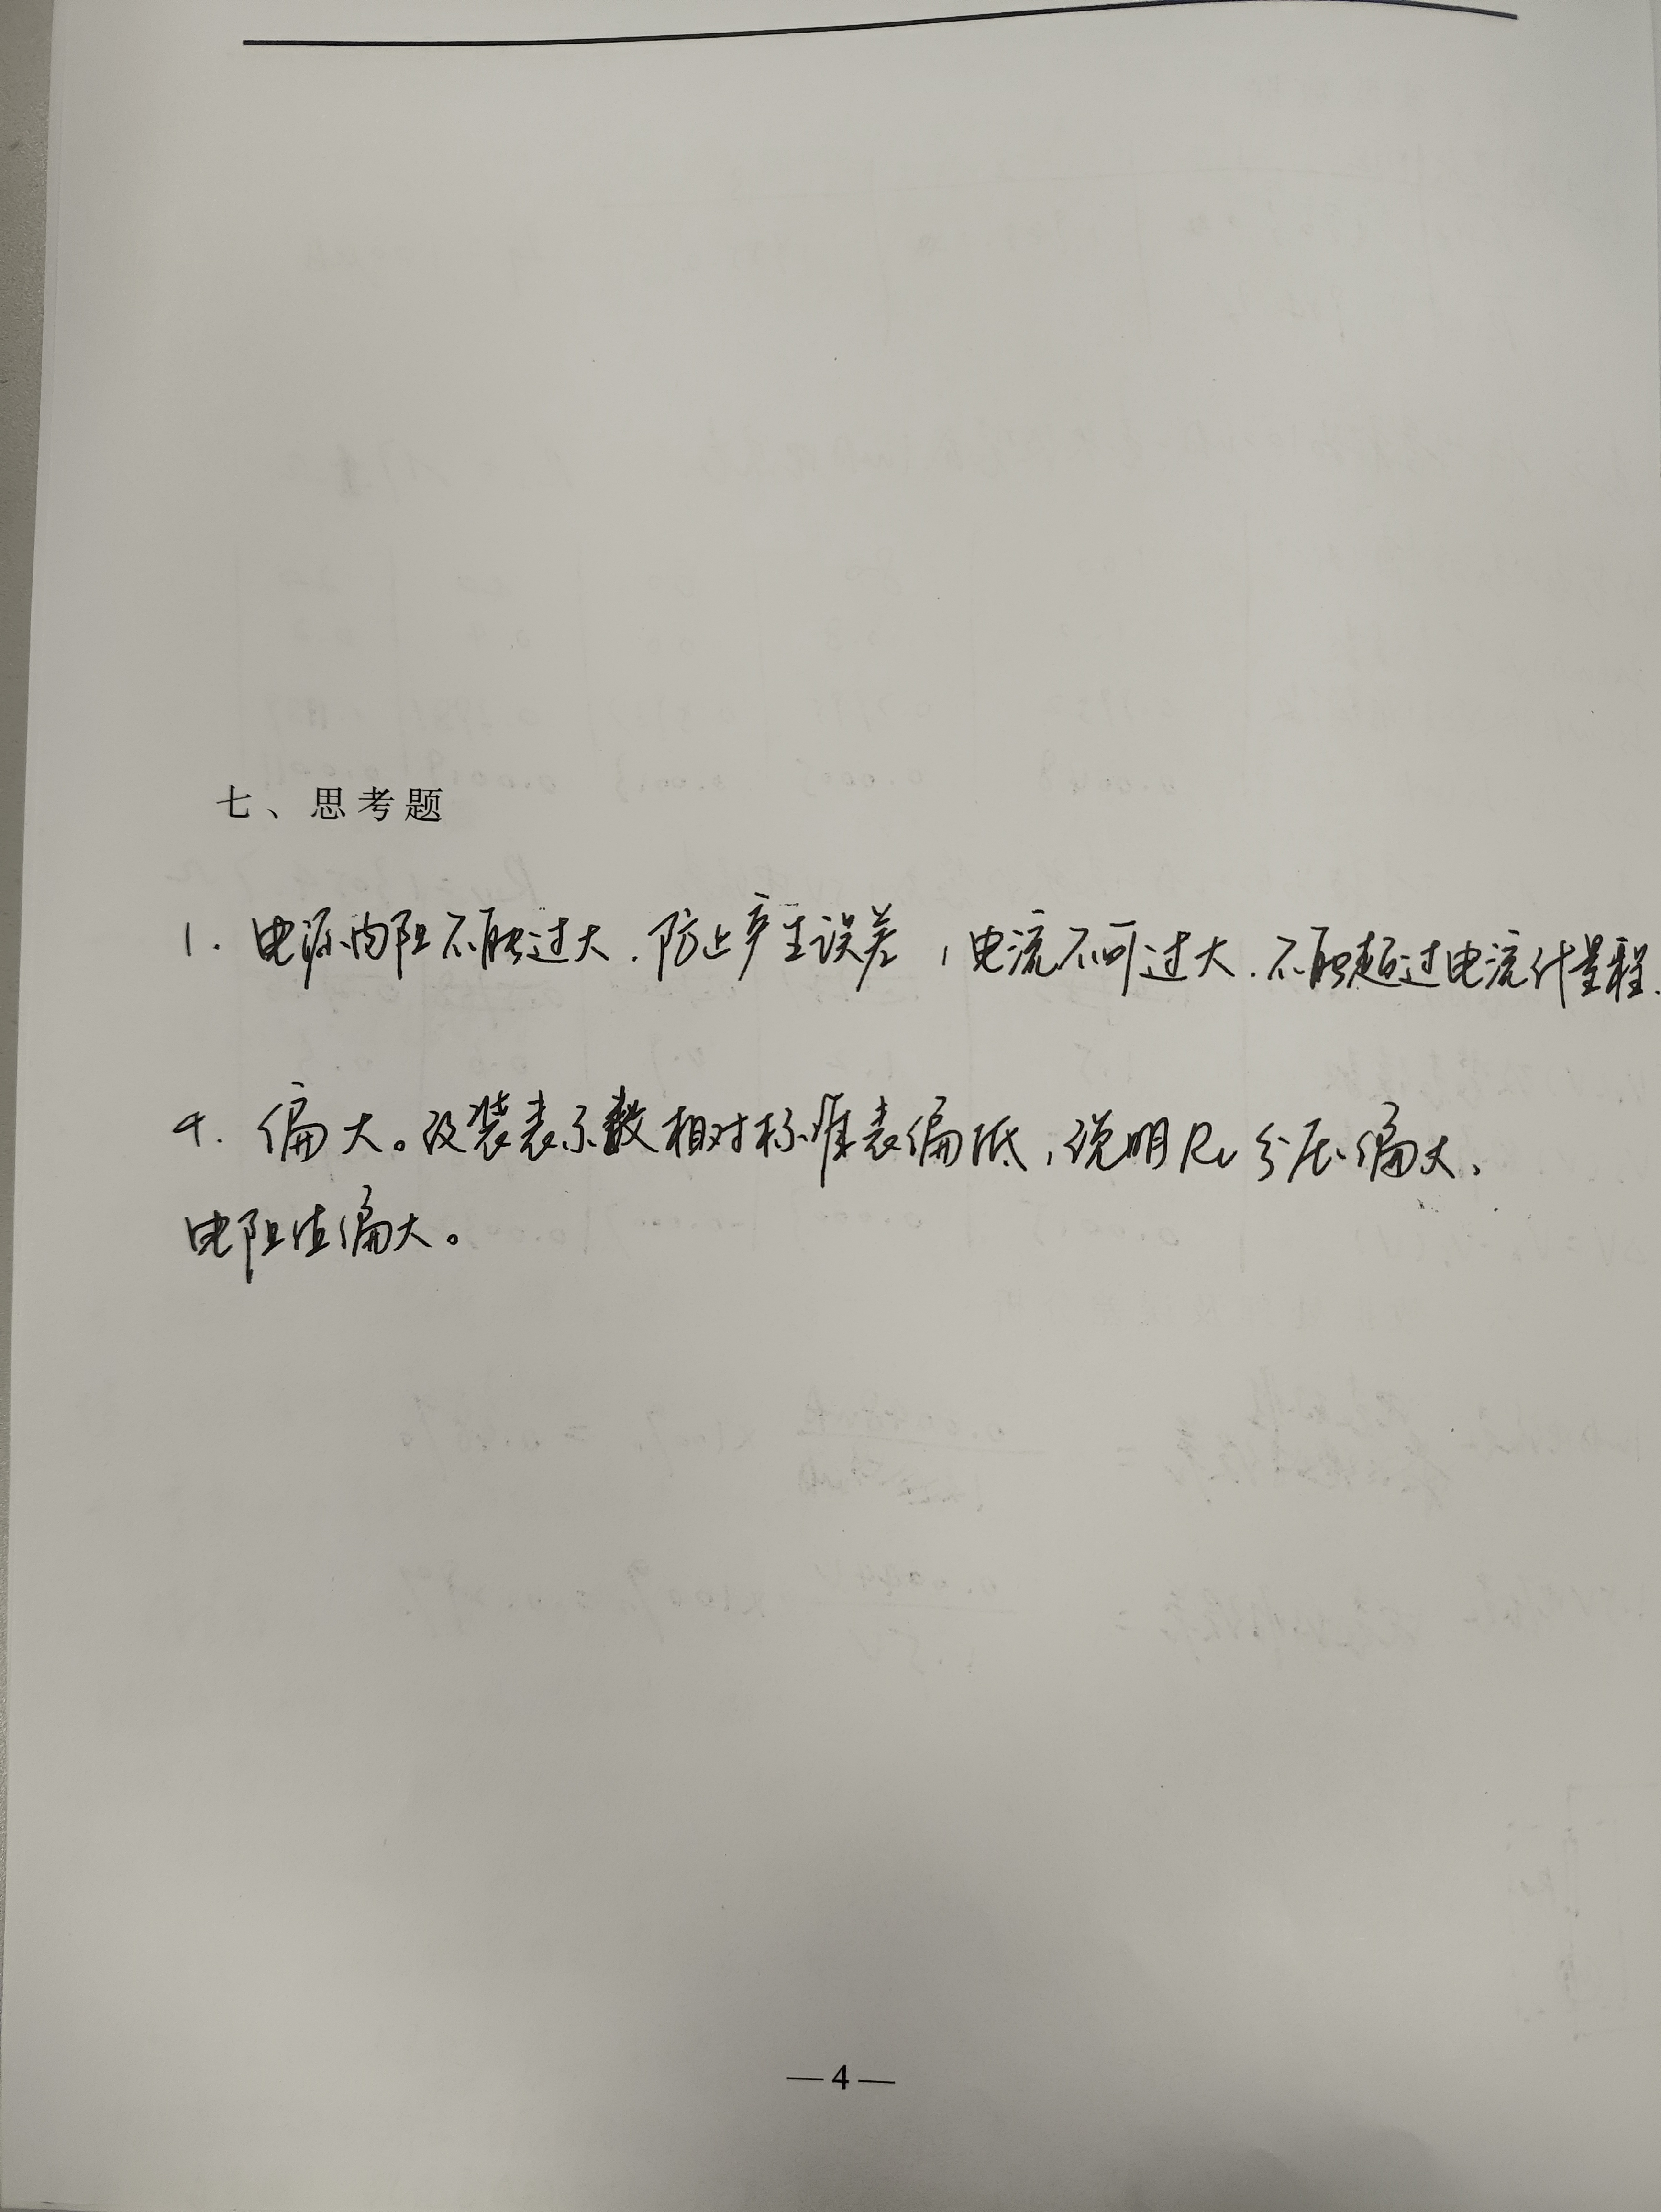 七、思考题
1. 电源内阻不能过大.防止产生误差,电流不可过大.不能超过电流计量程.
4. 偏大。改装表示数相对标准表偏低,说明Rv分压偏大、
电阻值偏大。
—4—